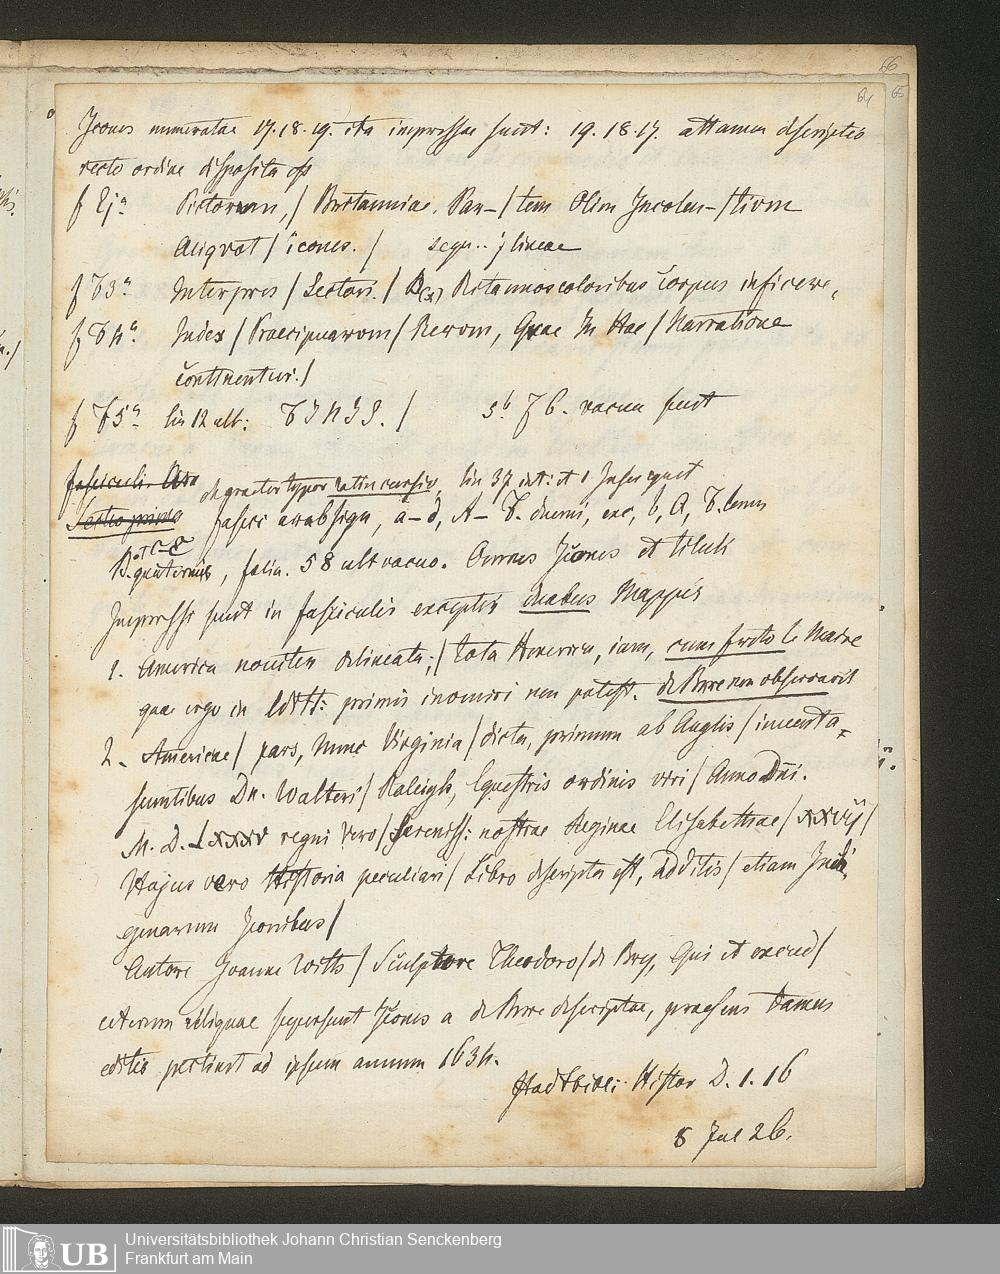 66
64 65
Icones numeratae 17. 18. 19. ita impressae sunt: 19. 18. 17. attamen descriptio
recto ordine disposita est
f Eja Pictorum, / Britanniae. Par- / tem Olim Incolen- / tivm
Aliqvot / icones. / sequ.. 7 lineae
f F3a Interpres / Lectori. / Britannos coloribus corpus inficere,
f F4a Index / Praecipuarvm / Rervm, Quae In Hac / Narratione
continentur. /
f F5a lin 12 ult: 5b F6. vacua sunt
fasciculi
Sectio prima
typos latin cursiv, lin 37
sign, a-d, A-F. duerni, exc, b,
quaternis, folia. 58 ult vacuo. Omnes Icones et tituli
Impressi sunt in fasciculis exceptis duabus Mappis
1. America noviter delineata; / cum freto le Maire
quae ergo in primis inveniri non potest. de Bure non observavit
2. Americae / pars, Nunc Virginia / dicta, primum ab Anglis / inuenta,
sumtibus Dn. Walteri / Raleigh, Equestris ordinis viri / Anno Dni.
M. D. LXXXV regni vero / Sereniss: nostrae Reginae Elisabethae / XXVII /
Hujus vero Historia peculiari / Libro descripta est, additis / etiam Indi
genarum Iconibus /
Autore Joanne With / Sculptore Theodoro / de Bry, Qui et excud /
ceterum reliquae supersunt Icones a de Bure descriptae, praesens tamen
editio pertinet ad ipsum annum 1634.
Stadtbibl: Histor D. 1. 16
8 Jul 26.
UB
Universitätsbibliothek Johann Christian Senckenberg
Frankfurt am Main